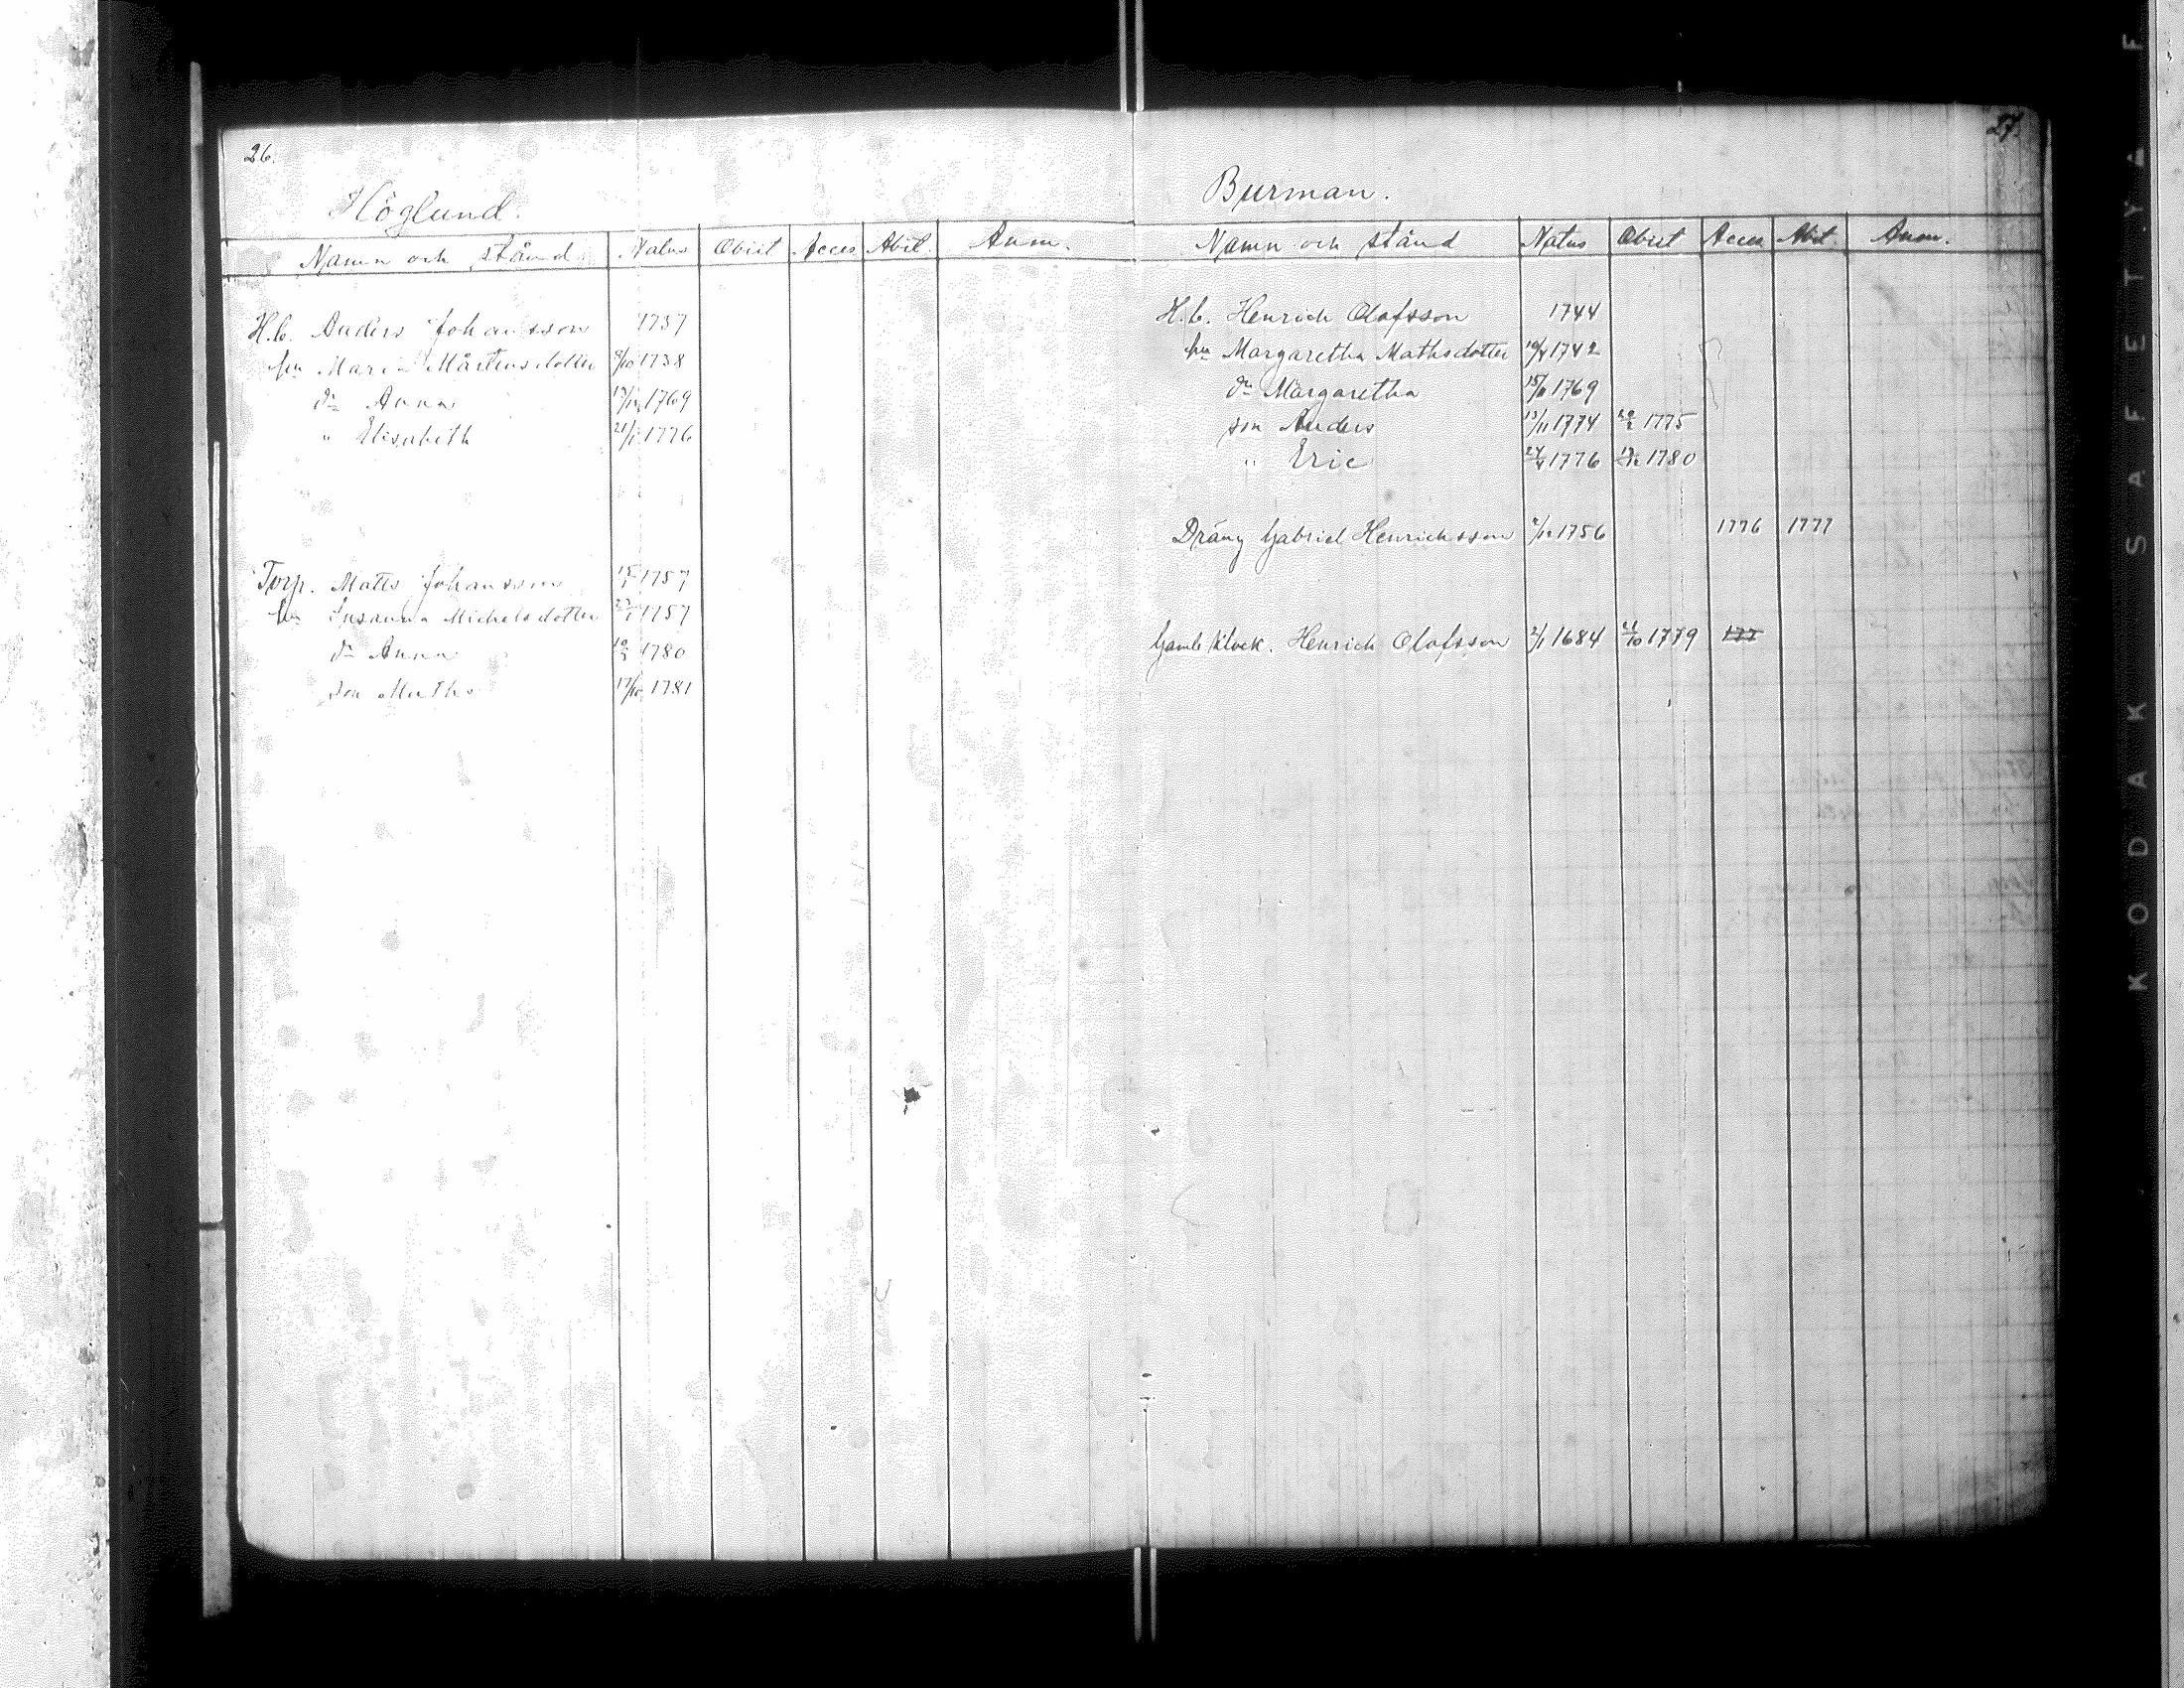 26.
Höglund.
Namn och stånd Natus Obiit Acces Abit. Anm.
H.b. Anders Johansson 1737
hu Maria Mårtensdotter 9/10 1738
dr Anna 1769
" Elisabeth 1776
Torp. Matts Johansson 15/1 1757
hu Susanna Michelsdotter 1757
dr Anna 1780
son Maths 17/10 1781
27.
Burman.
Namn och stånd Natus Obiit Acces Abit. Anm.
H.b. Henrich Olofsson 1744
hu Margaretha Mathsdotter 19/4 1742
dr Margaretha 1769
son Anders 13/11 1774 1775
" Eric 24/4 1776 1780
Dräng Gabriel Henrichsson 1756 1776 1777
Gamle klock. Henrich Olofsson 2/1 1684 1779 177
KODAK SAFETY